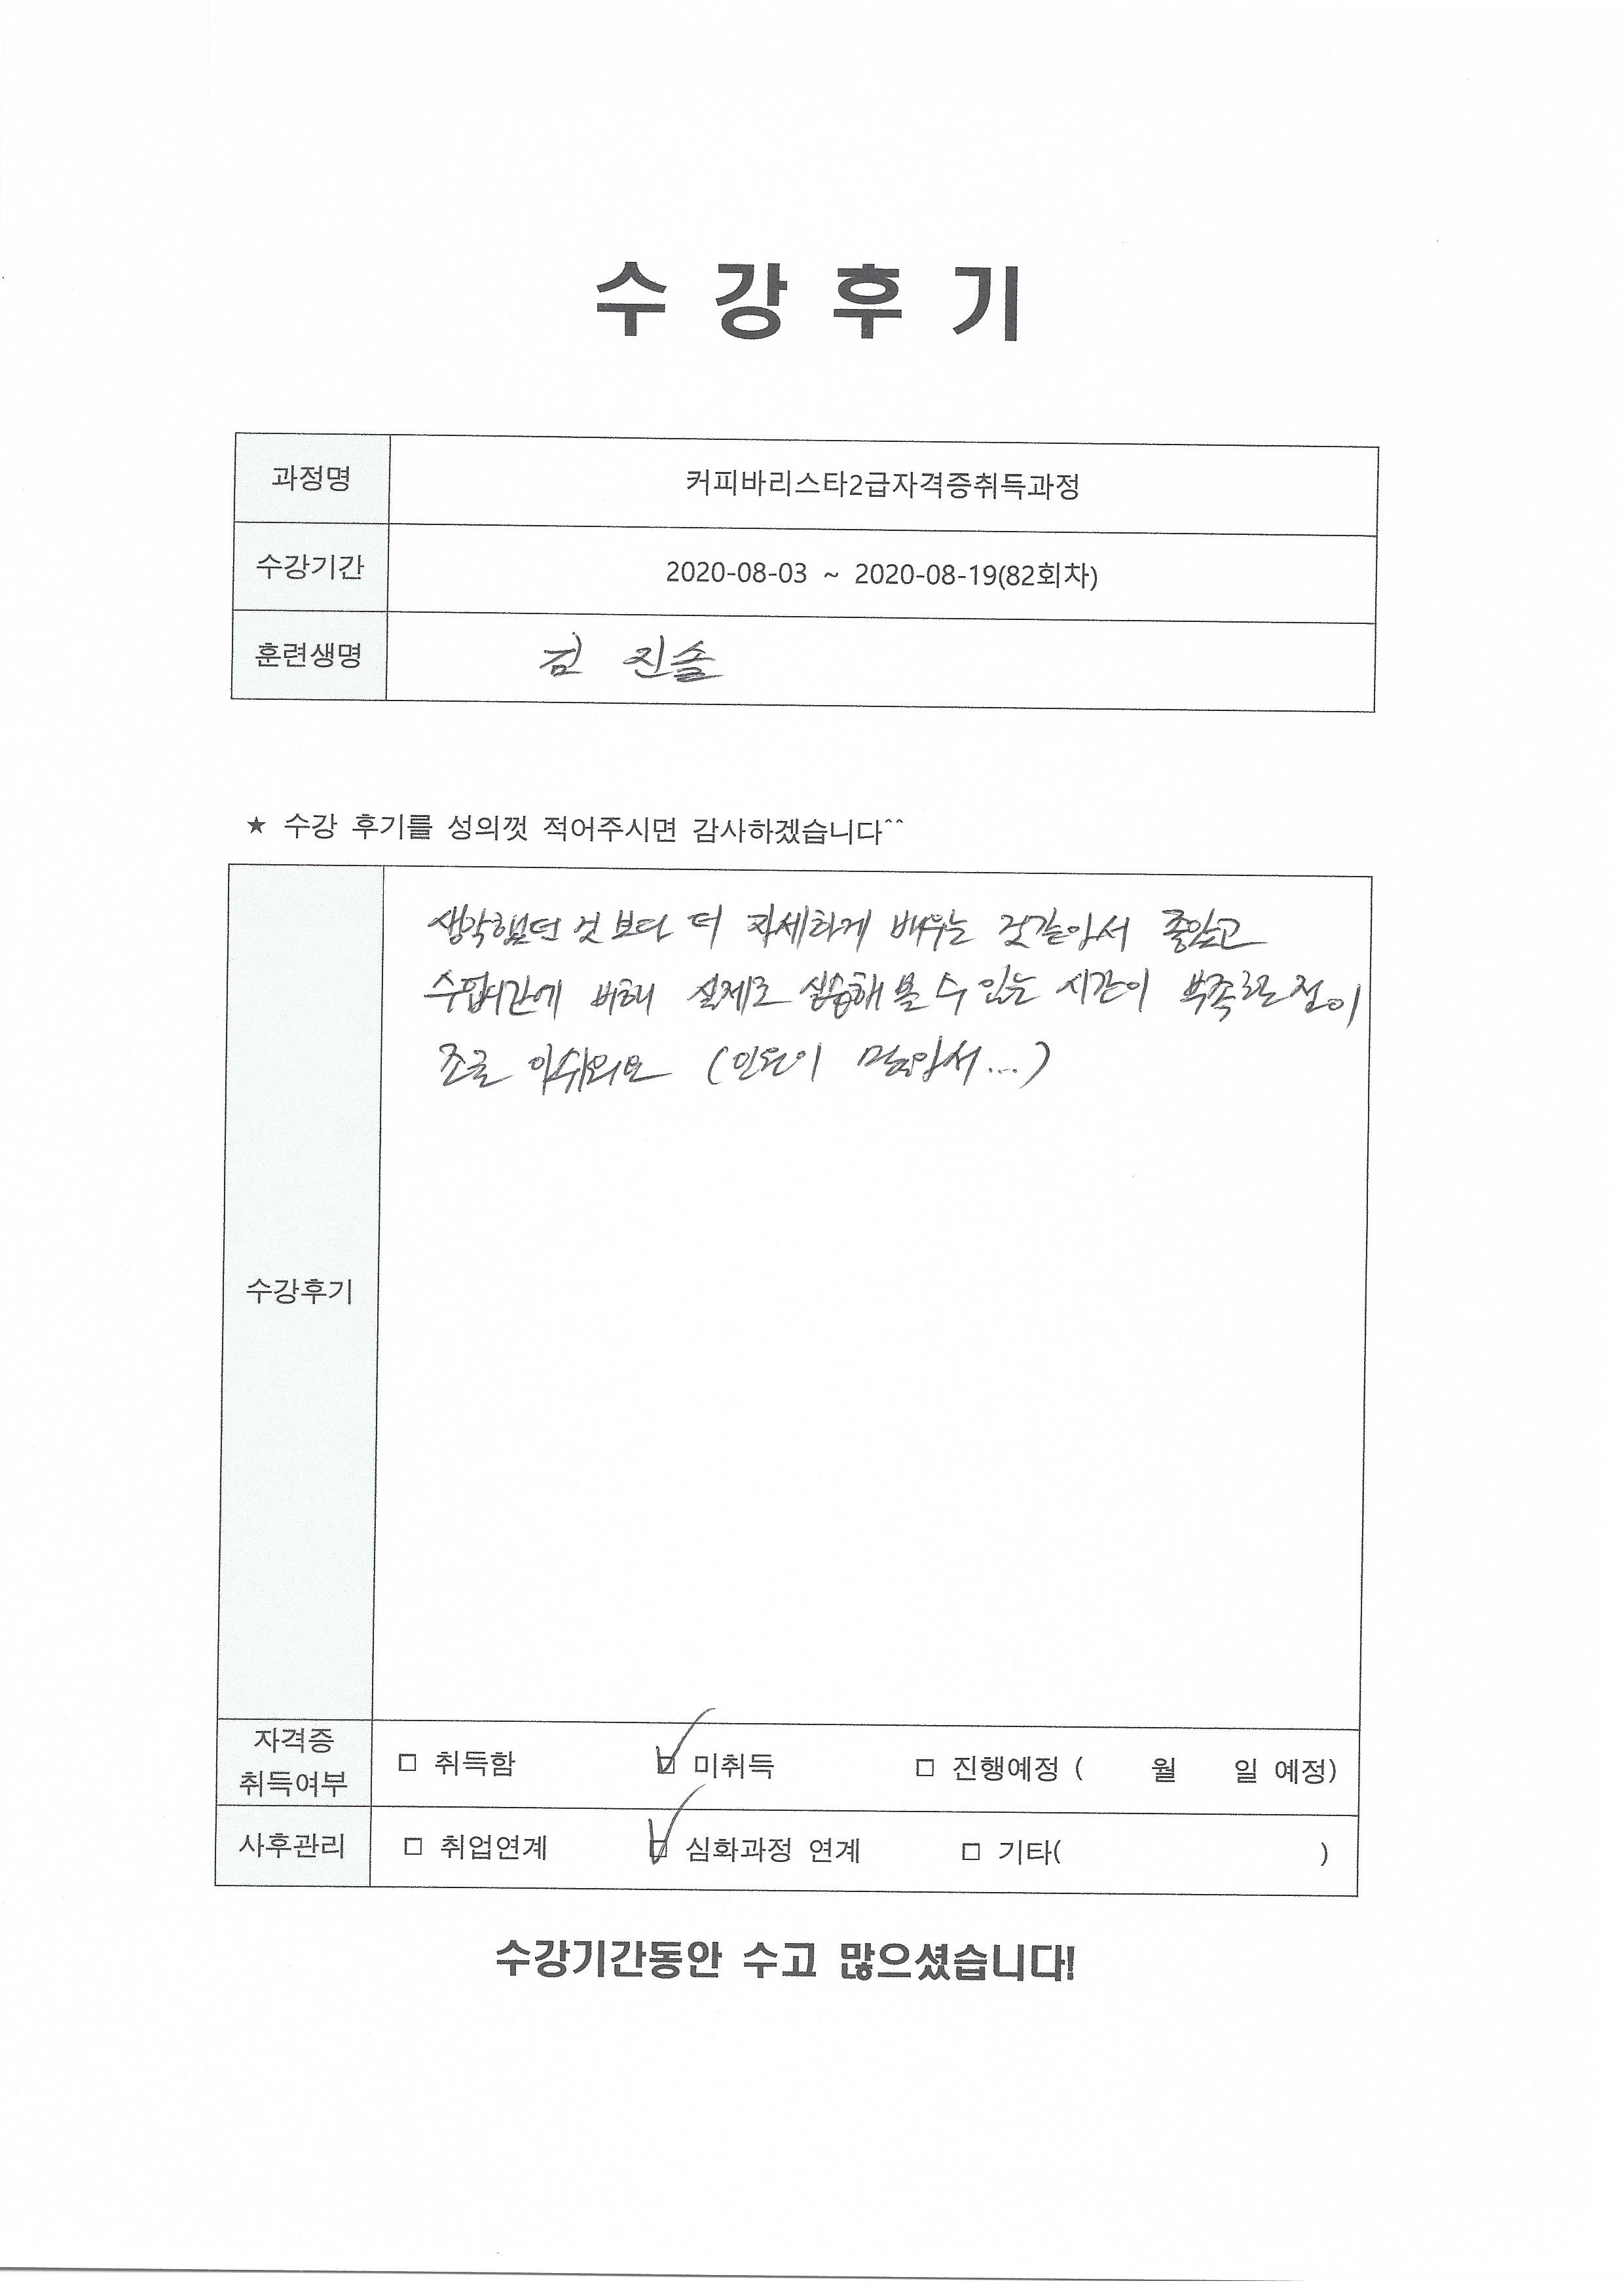 수 강 후 기
과정명 커피바리스타2급자격증취득과정
수강기간 2020-08-03 ~ 2020-08-19(82회차)
훈련생명 김 진솔
★ 수강 후기를 성의껏 적어주시면 감사하겠습니다^^
생각했던 것 보다 더 자세하게 배우는 것같아서 좋았고
수업시간에 비해 실제로 실습해 볼 수 있는 시간이 부족한 점이
조금 아쉬워요 (인원이 많아서...)
수강후기
자격증
취득여부
□ 취득함 ☑ 미취득 □ 진행예정 ( 월 일 예정)
사후관리 □ 취업연계 ☑ 심화과정 연계 □ 기타( )
수강기간동안 수고 많으셨습니다!